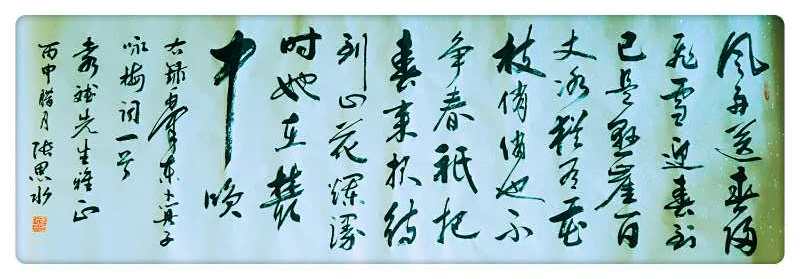 风雨送春归
飞雪迎春到
已是悬崖百
丈冰犹有花
枝俏俏也不
争春祇把
春来报待
到山花烂漫
时她在丛
中咲
右録毛泽东卜算子
咏梅词一首
先生雅正
丙申腊月 张思水